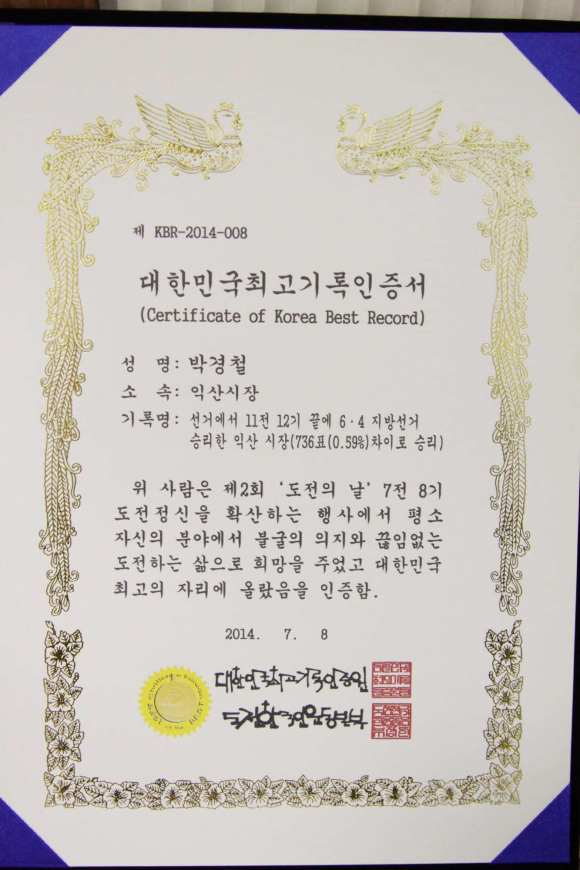 제 KBR-2014-008
대한민국최고기록인증서
(Certificate of Korea Best Record)
성 명: 박경철
소 속: 익산시장
기록명: 선거에서 11전 12기 끝에 6·4 지방선거
승리한 익산 시장(736표(0.59%)차이로 승리)
위 사람은 제2회 '도전의 날' 7전 8기
도전정신을 확산하는 행사에서 평소
자신의 분야에서 불굴의 의지와 끊임없는
도전하는 삶으로 희망을 주었고 대한민국
최고의 자리에 올랐음을 인증함.
2014. 7. 8
대한민국최고기록인증원
도전한국인운동본부